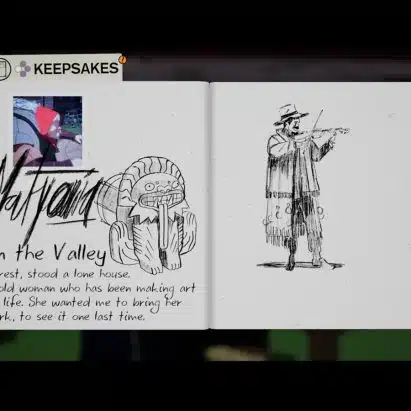 KEEPSAKES
n the Valley
rest, stood a lone house.
old woman who has been making art
life. She wanted me to bring her
rk, to see it one last time.